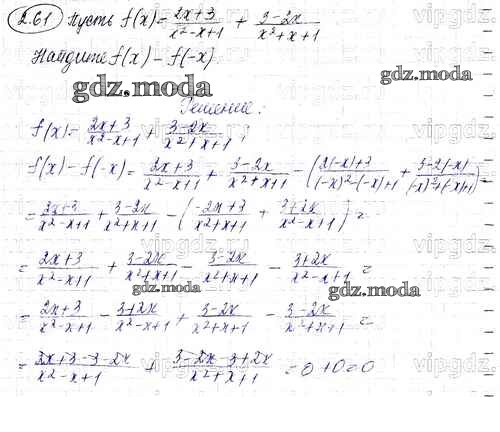 2.61 Пусть f(x)= (2x+3)/(x²-x+1) + (3-2x)/(x²+x+1)
Найдите f(x) - f(-x).
gdz.moda
gdz.moda
Решение:
f(x)= (2x+3)/(x²-x+1) + (3-2x)/(x²+x+1),
f(x) - f(-x) = (2x+3)/(x²-x+1) + (3-2x)/(x²+x+1) - ((2(-x)+3)/((-x)²-(-x)+1) + (3-2(-x))/((-x)²+(-x)+1))
= (2x+3)/(x²-x+1) + (3-2x)/(x²+x+1) - ((-2x+3)/(x²+x+1) + (3+2x)/(x²-x+1)) =
= (2x+3)/(x²-x+1) + (3-2x)/(x²+x+1) - (3-2x)/(x²+x+1) - (3+2x)/(x²-x+1) =
gdz.moda
gdz.moda
= (2x+3)/(x²-x+1) - (3+2x)/(x²-x+1) + (3-2x)/(x²+x+1) - (3-2x)/(x²+x+1) =
= (2x+3-3-2x)/(x²-x+1) + (3-2x-3+2x)/(x²+x+1) = 0+0=0